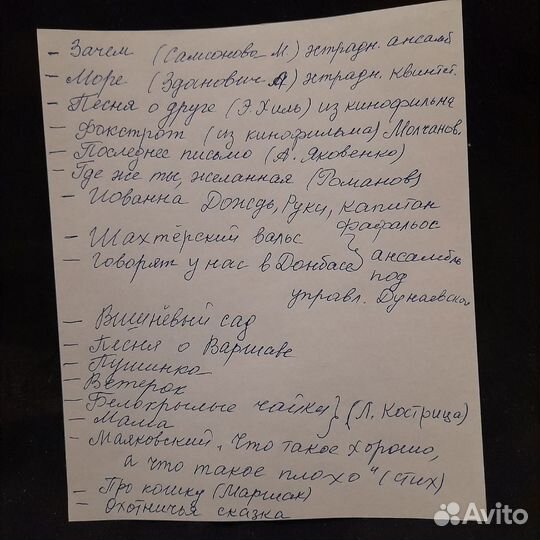 - Зачем (Самсонова М) эстрадн. ансамб
- Море (Зданович А) эстрадн. квинтет.
- Песня о друге (Э. Хиль) из кинофильма
- Фокстрот (из кинофильма) Молчанов.
- Последнее письмо (А. Яковенко)
- Где же ты, желанная (Романов)
- Иованна Дождь, Руки, капитан
- Шахтёрский вальс
- Говорят у нас в Донбасе } ансамбль
под
управл. Дунаевской
- Вишнёвый сад
- Песня о Варшаве
- Пушинка
- Ветерок
- Белокрылые чайки } (Л. Кострица)
- Мама
- Маяковский „Что такое хорошо,
а что такое плохо" (стих)
- Про кошку (Маршак)
- Охотничья сказка
Avito